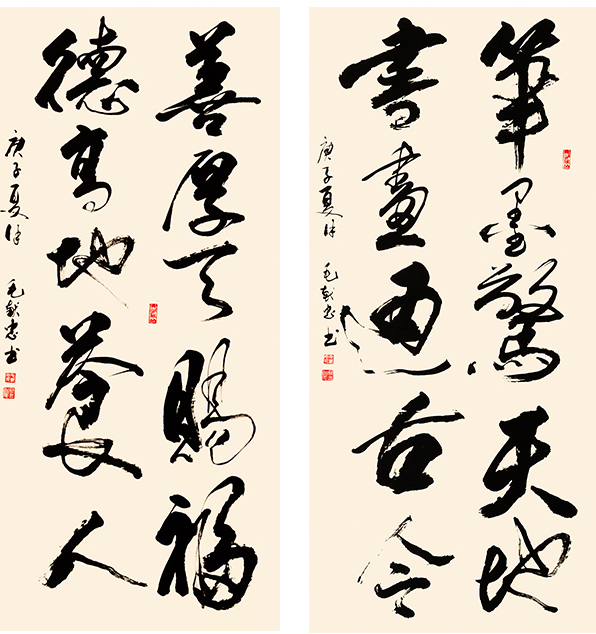 筆墨驚天地
書畫通古今
庚子夏 毛献忠书
善厚天賜福
德高地養人
庚子夏 毛献忠书